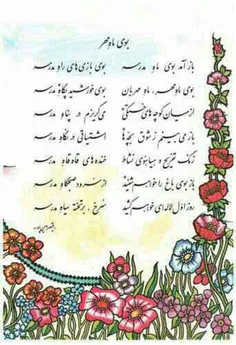 بوی ماه مهر
باز آمد بوی ماه مدرسه
بوی بازی های راه مدرسه
بوی ماه مهر، ماه مهربان
بوی خورشید پگاه مدرسه
از میان کوچه های خستگی
می گریزم در پناه مدرسه
باز می بینم ز شوق بچه ها
اشتیاقی در نگاه مدرسه
زنگ تفریح و هیاهوی نشاط
خنده های قاه قاه مدرسه
باز بوی باغ را خواهم شنید
از سرود صبحگاه مدرسه
روز اول لاله ای خواهم کشید
سرخ، بر تخته سیاه مدرسه
قیصر امین پور